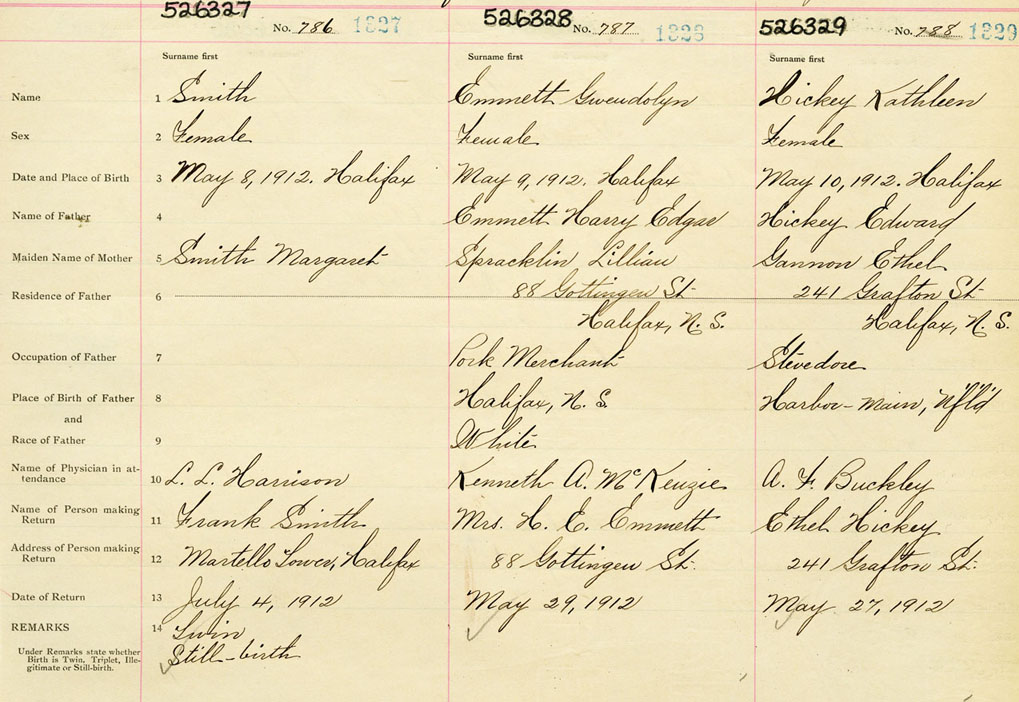 526327 526328 526329
No. 786 1327 No. 787 1328 No. 788 1329
Surname first Surname first Surname first
Name 1 Smith Emmett Gwendolyn Hickey Kathleen
Sex 2 Female Female Female
Date and Place of Birth 3 May 8, 1912. Halifax May 9, 1912. Halifax May 10, 1912. Halifax
Name of Father 4 Emmett Harry Edgar Hickey Edward
Maiden Name of Mother 5 Smith Margaret Spracklin Lillian Gannon Ethel
Residence of Father 6 88 Gottingen St. 241 Grafton St.
Halifax, N. S. Halifax, N. S.
Occupation of Father 7 Pork Merchant Stevedore
Place of Birth of Father 8 Halifax, N. S. Harbor-Main, Nfld
and
Race of Father 9 White
Name of Physician in at-
tendance 10 L. L. Harrison Kenneth A. McKenzie A. F. Buckley
Name of Person making
Return 11 Frank Smith Mrs. H. E. Emmett Ethel Hickey
Address of Person making
Return 12 Martello Tower, Halifax 88 Gottingen St. 241 Grafton St.
Date of Return 13 July 4, 1912 May 29, 1912 May 27, 1912
REMARKS 14 Twin
Under Remarks state whether Still-birth
Birth is Twin, Triplet, Ille-
gitimate or Still-birth.